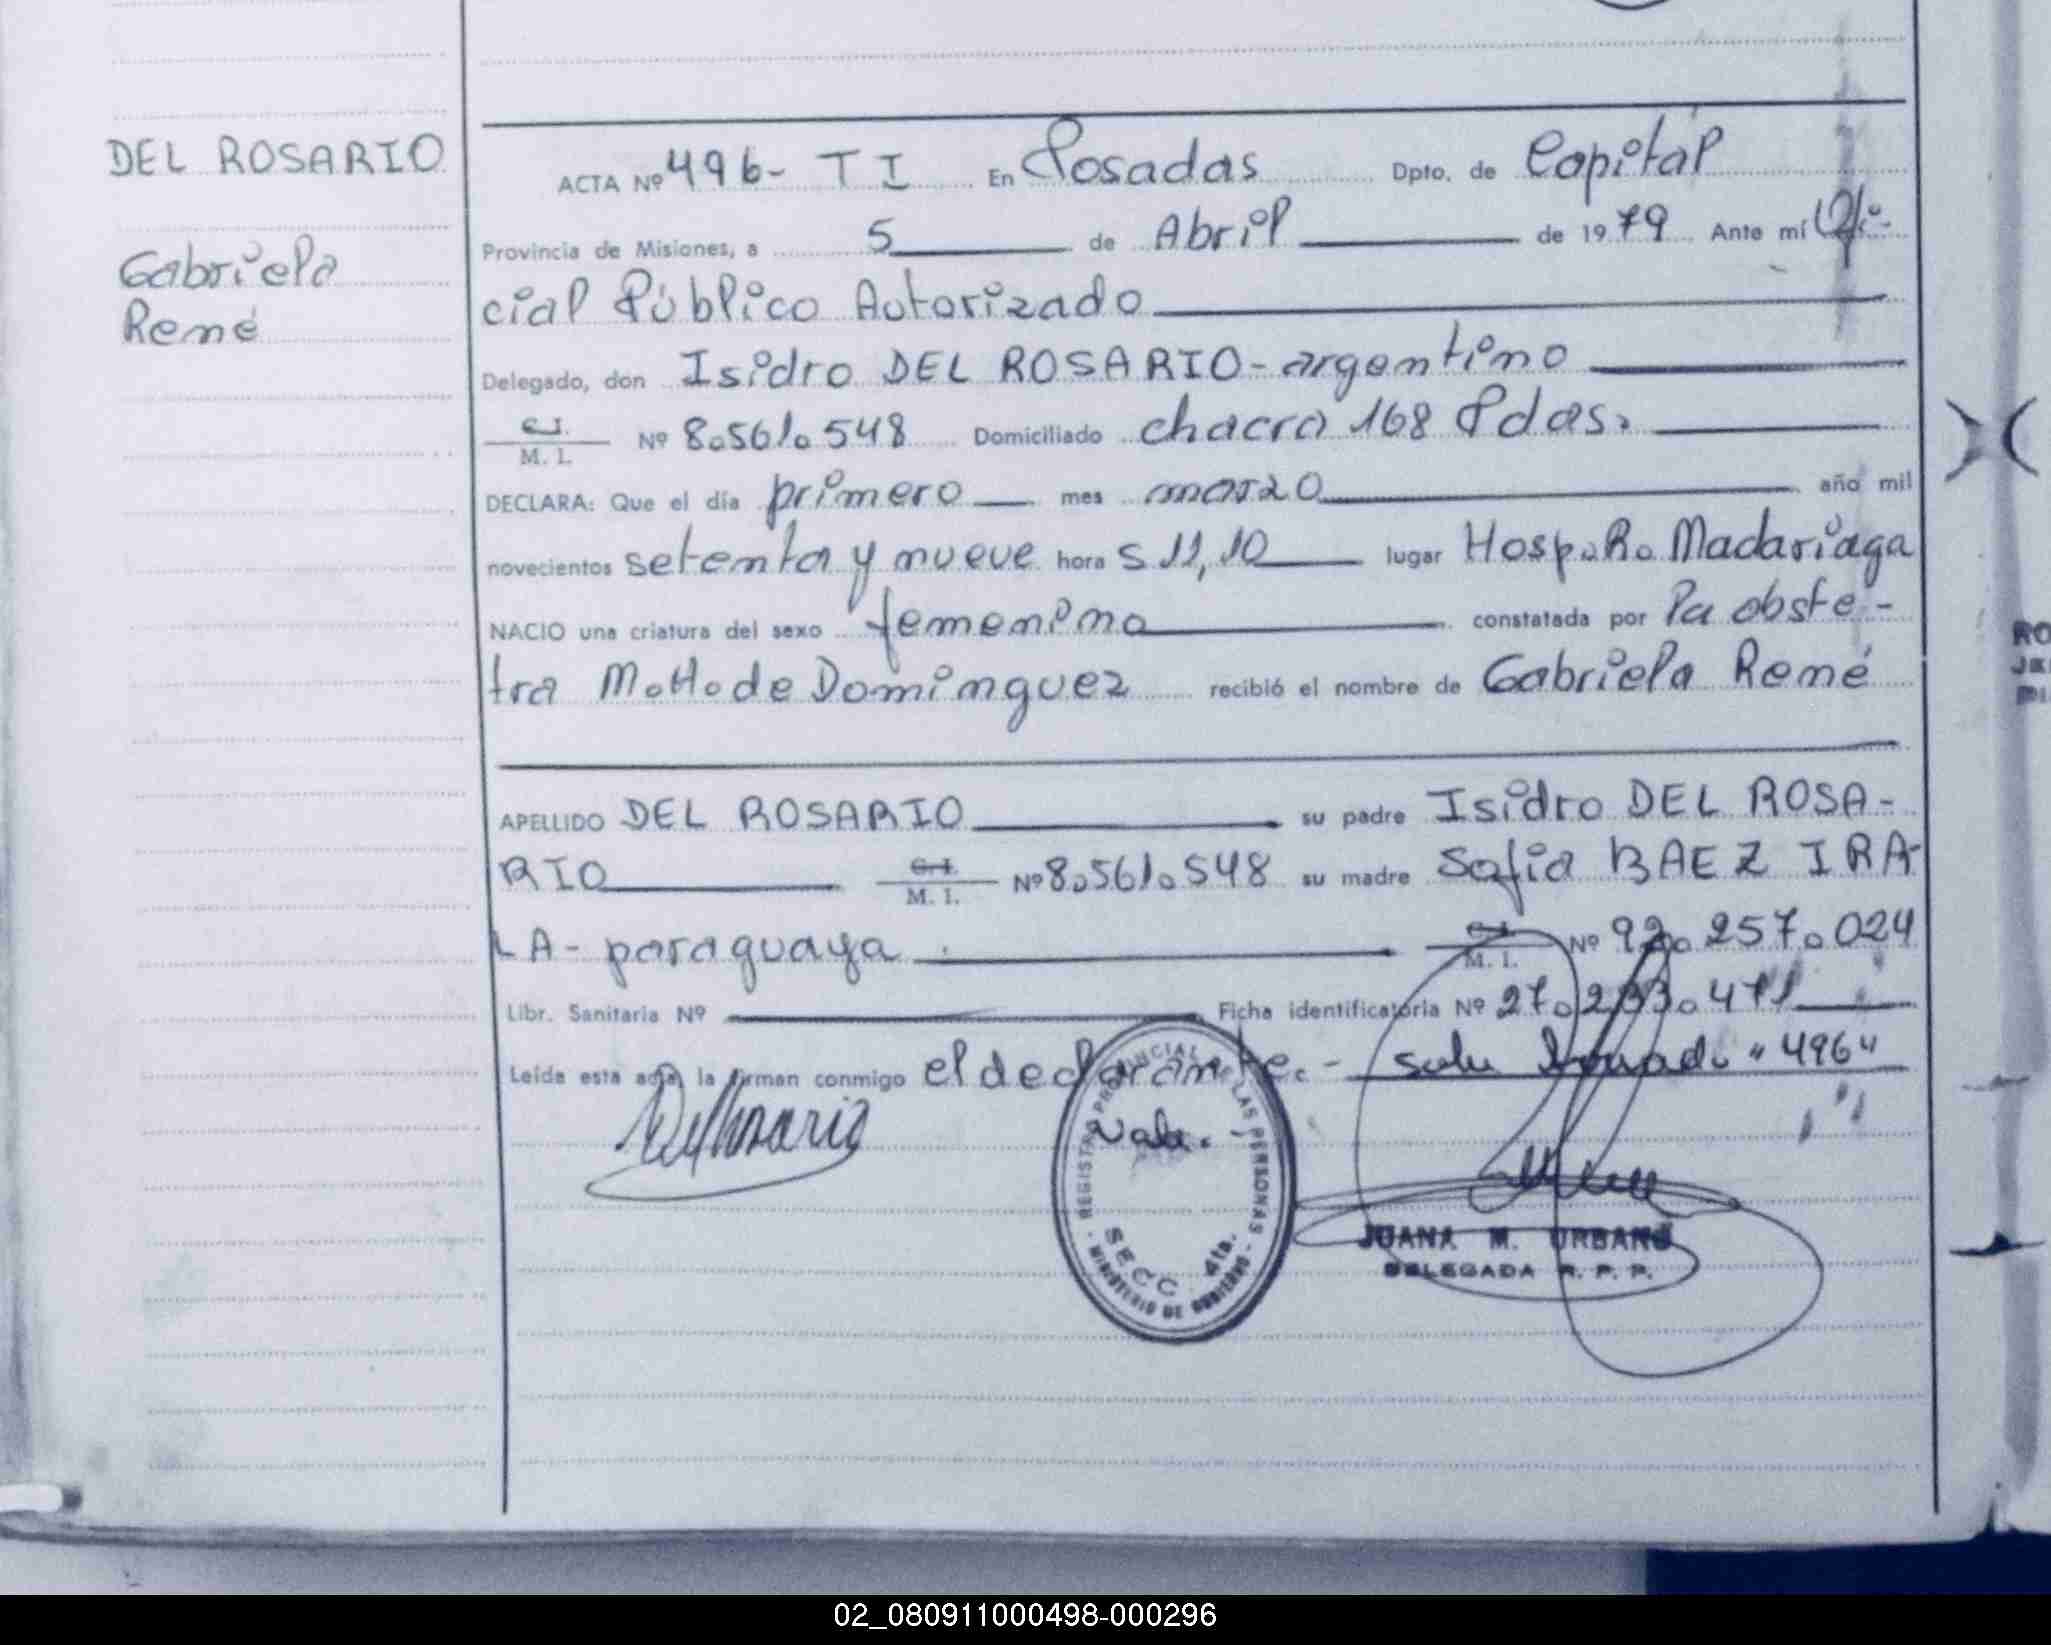 DEL ROSARIO
Gabriela
René
ACTA Nº 496- T I En Posadas Dpto. de Capital
Provincia de Misiones, a 5 de Abril de 1979 Ante mí Ofi-
cial Público Autorizado
Delegado, don Isidro DEL ROSARIO - argentino
C.I. M. I. Nº 8.561.548 Domiciliado chacra 168 Pdas.
DECLARA: Que el día primero mes marzo año mil
novecientos setenta y nueve hora s 11,10 lugar Hosp. R. Madariaga
NACIO una criatura del sexo femenino constatada por la obste-
tra M. H. de Dominguez recibió el nombre de Gabriela René
APELLIDO DEL ROSARIO su padre Isidro DEL ROSA-
RIO C.I. M. I. Nº 8.561.548 su madre Sofia BAEZ IRA-
LA - paraguaya C.I. M. I. Nº 92.257.024
Libr. Sanitaria Nº Ficha identificatoria Nº 27.233.471
Leída esta acta la firman conmigo el declarante.- "496"
Vale.
DelRosario
REGISTRO PROVINCIAL DE LAS PERSONAS
SECC. 4ta.
MINISTERIO DE GOBIERNO
JUANA M. URBANO
DELEGADA R. P. P.
RO
02_080911000498-000296